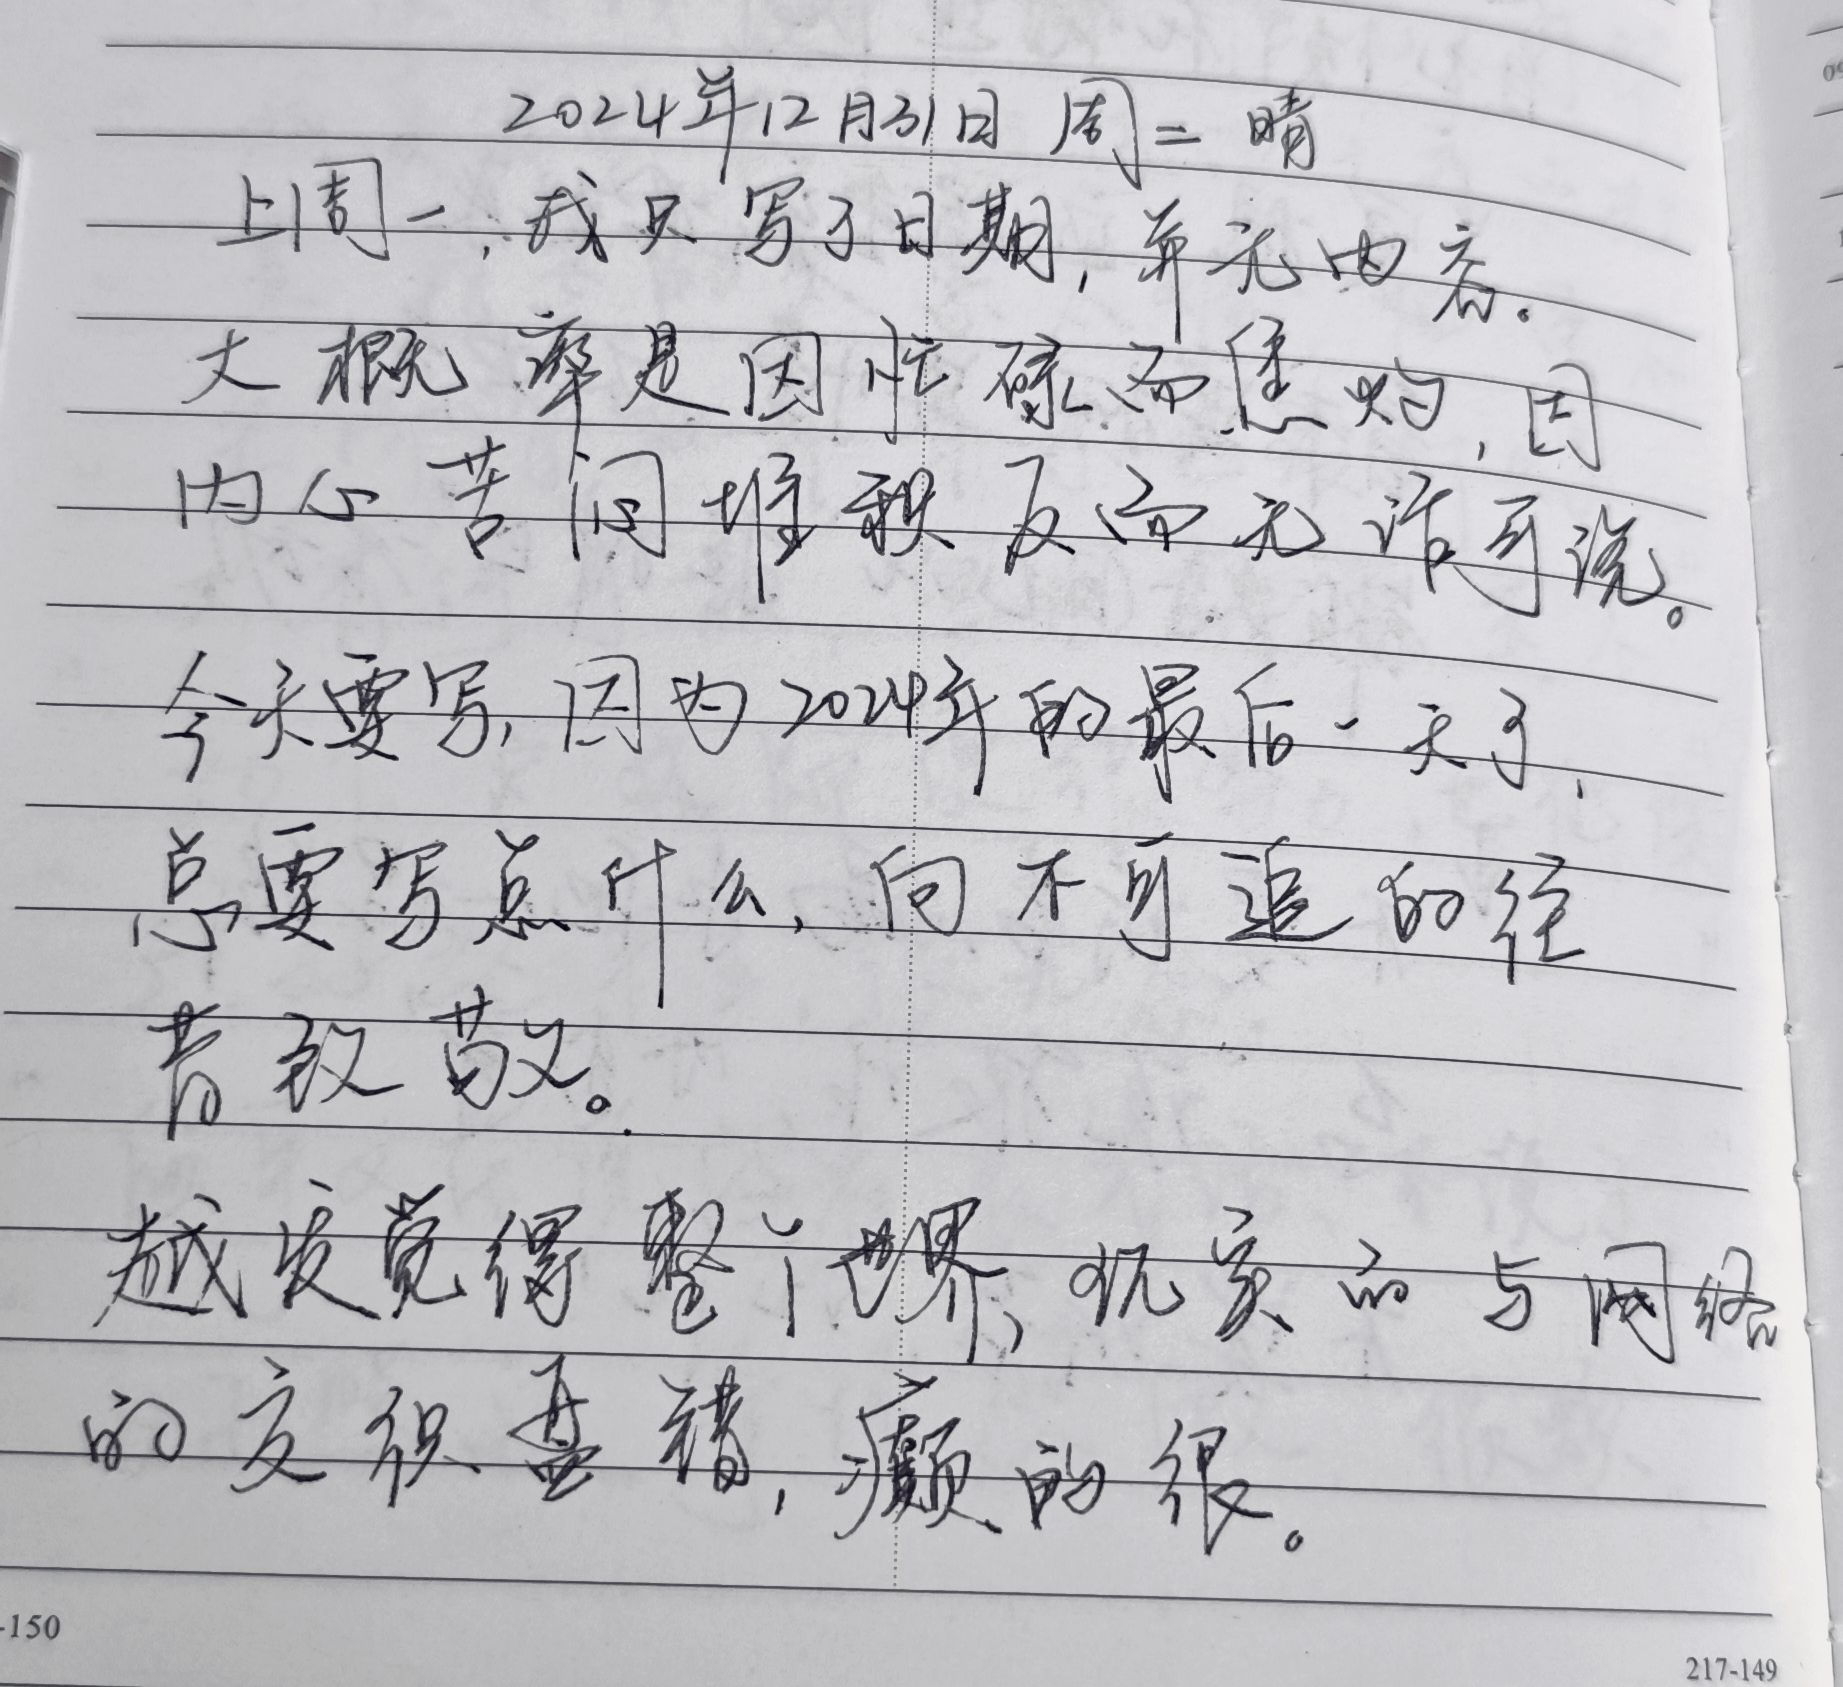 2024年12月31日 周二 晴
上周一，我只写了日期，并无内容。
大概率是因忙碌而焦灼，因
内心苦闷堆积反而无话可说。
今天要写，因为2024年的最后一天了，
总要写点什么，向不可追的往
昔致敬。
越发觉得整个世界，现实的与网络
的交织盘错，癫的很。
-150
217-149